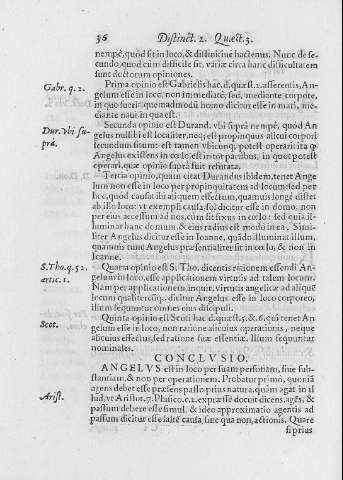 36 Distinct. 2. Quæst. 3.
nempè, quòd sit in loco, & distinctiuè hactenus. Nunc de se-
cundo, quod cùm difficile sit, variæ circa hanc difficultatem
sunt doctorum opiniones.
Gabr. q. 2.
Prima opinio est Gabrielis hac. d. quæst. 2. asserentis, An-
gelum esse in loco, non immediatè, sed, mediante corpore,
in quo fuerit quemadmodũ homo dicitur esse in mari, me-
diante naui in qua est.
Dur. vbi su-
prá.
Secunda opinio est Durand. vbi suprà nempè, quòd An-
gelus nullibi est localiter, neq; est propinquius alicui corpori
secundum situm: est tamen vbicunq. potest operari ita ꝙ
Angelus existens in cœlo, est in tot partibus, in quot potest
operari, quæ opinio suprà fuit refutata.
Tertia opinio, quam citat Durandus ibidem, tenet Ange
lum non esse in loco per propinquitatem ad locum sed per
hoc, quòd causat ibi aliquem effectum, quamuis longè distet
ab illo loco: vt exempli causa, sol dicitur esse in domo, non
per eius accessum ad nos, cùm sit fixus in cœlo: sed quia il-
luminat hanc domum, & eius radius est modò in ea, Simi-
liter Angelus dicitur esse in Ioanne, quãdo illuminat illum,
quamuis tunc Angelus præsentialiter sit in cœlo, & non in
Ioanne.
S. Tho. q. 52.
artic. 1.
Quarta opinio est S. Tho. dicentis rationem essendi An-
gelum in loco, esse applicationem virtutis ad talem locum.
Nam per applicationem inquit, virtutis angelicæ ad aliquē
locum qualitercũq;, dicitur Angelus esse in loco corporeo,
illum sequuntur omnes eius discipuli.
Scot.
Quinta opinio est Scoti hac d. quæst. 5. & 6. qui tenet An
gelum esse in loco, non ratione alicuius operationis, neque
alicuius effectus, sed ratione suæ essentiæ. Illum sequuntur
nominales.
CONCLVSIO.
ANGELVS est in loco per suam personam, siue sub-
stantiam, & non per operationem. Probatur primò, quoniã
agens debet esse præsens passo prius natura, quàm agat in il
Arist.
lud. vt Aristot. 7. Phisico. c. 2. expressè docuit dicens, agēs, &
passum debere esse simul. & ideo approximatio agentis ad
passum dicitur esse saltē causa, sine qua non, actionis. Quare
si prius